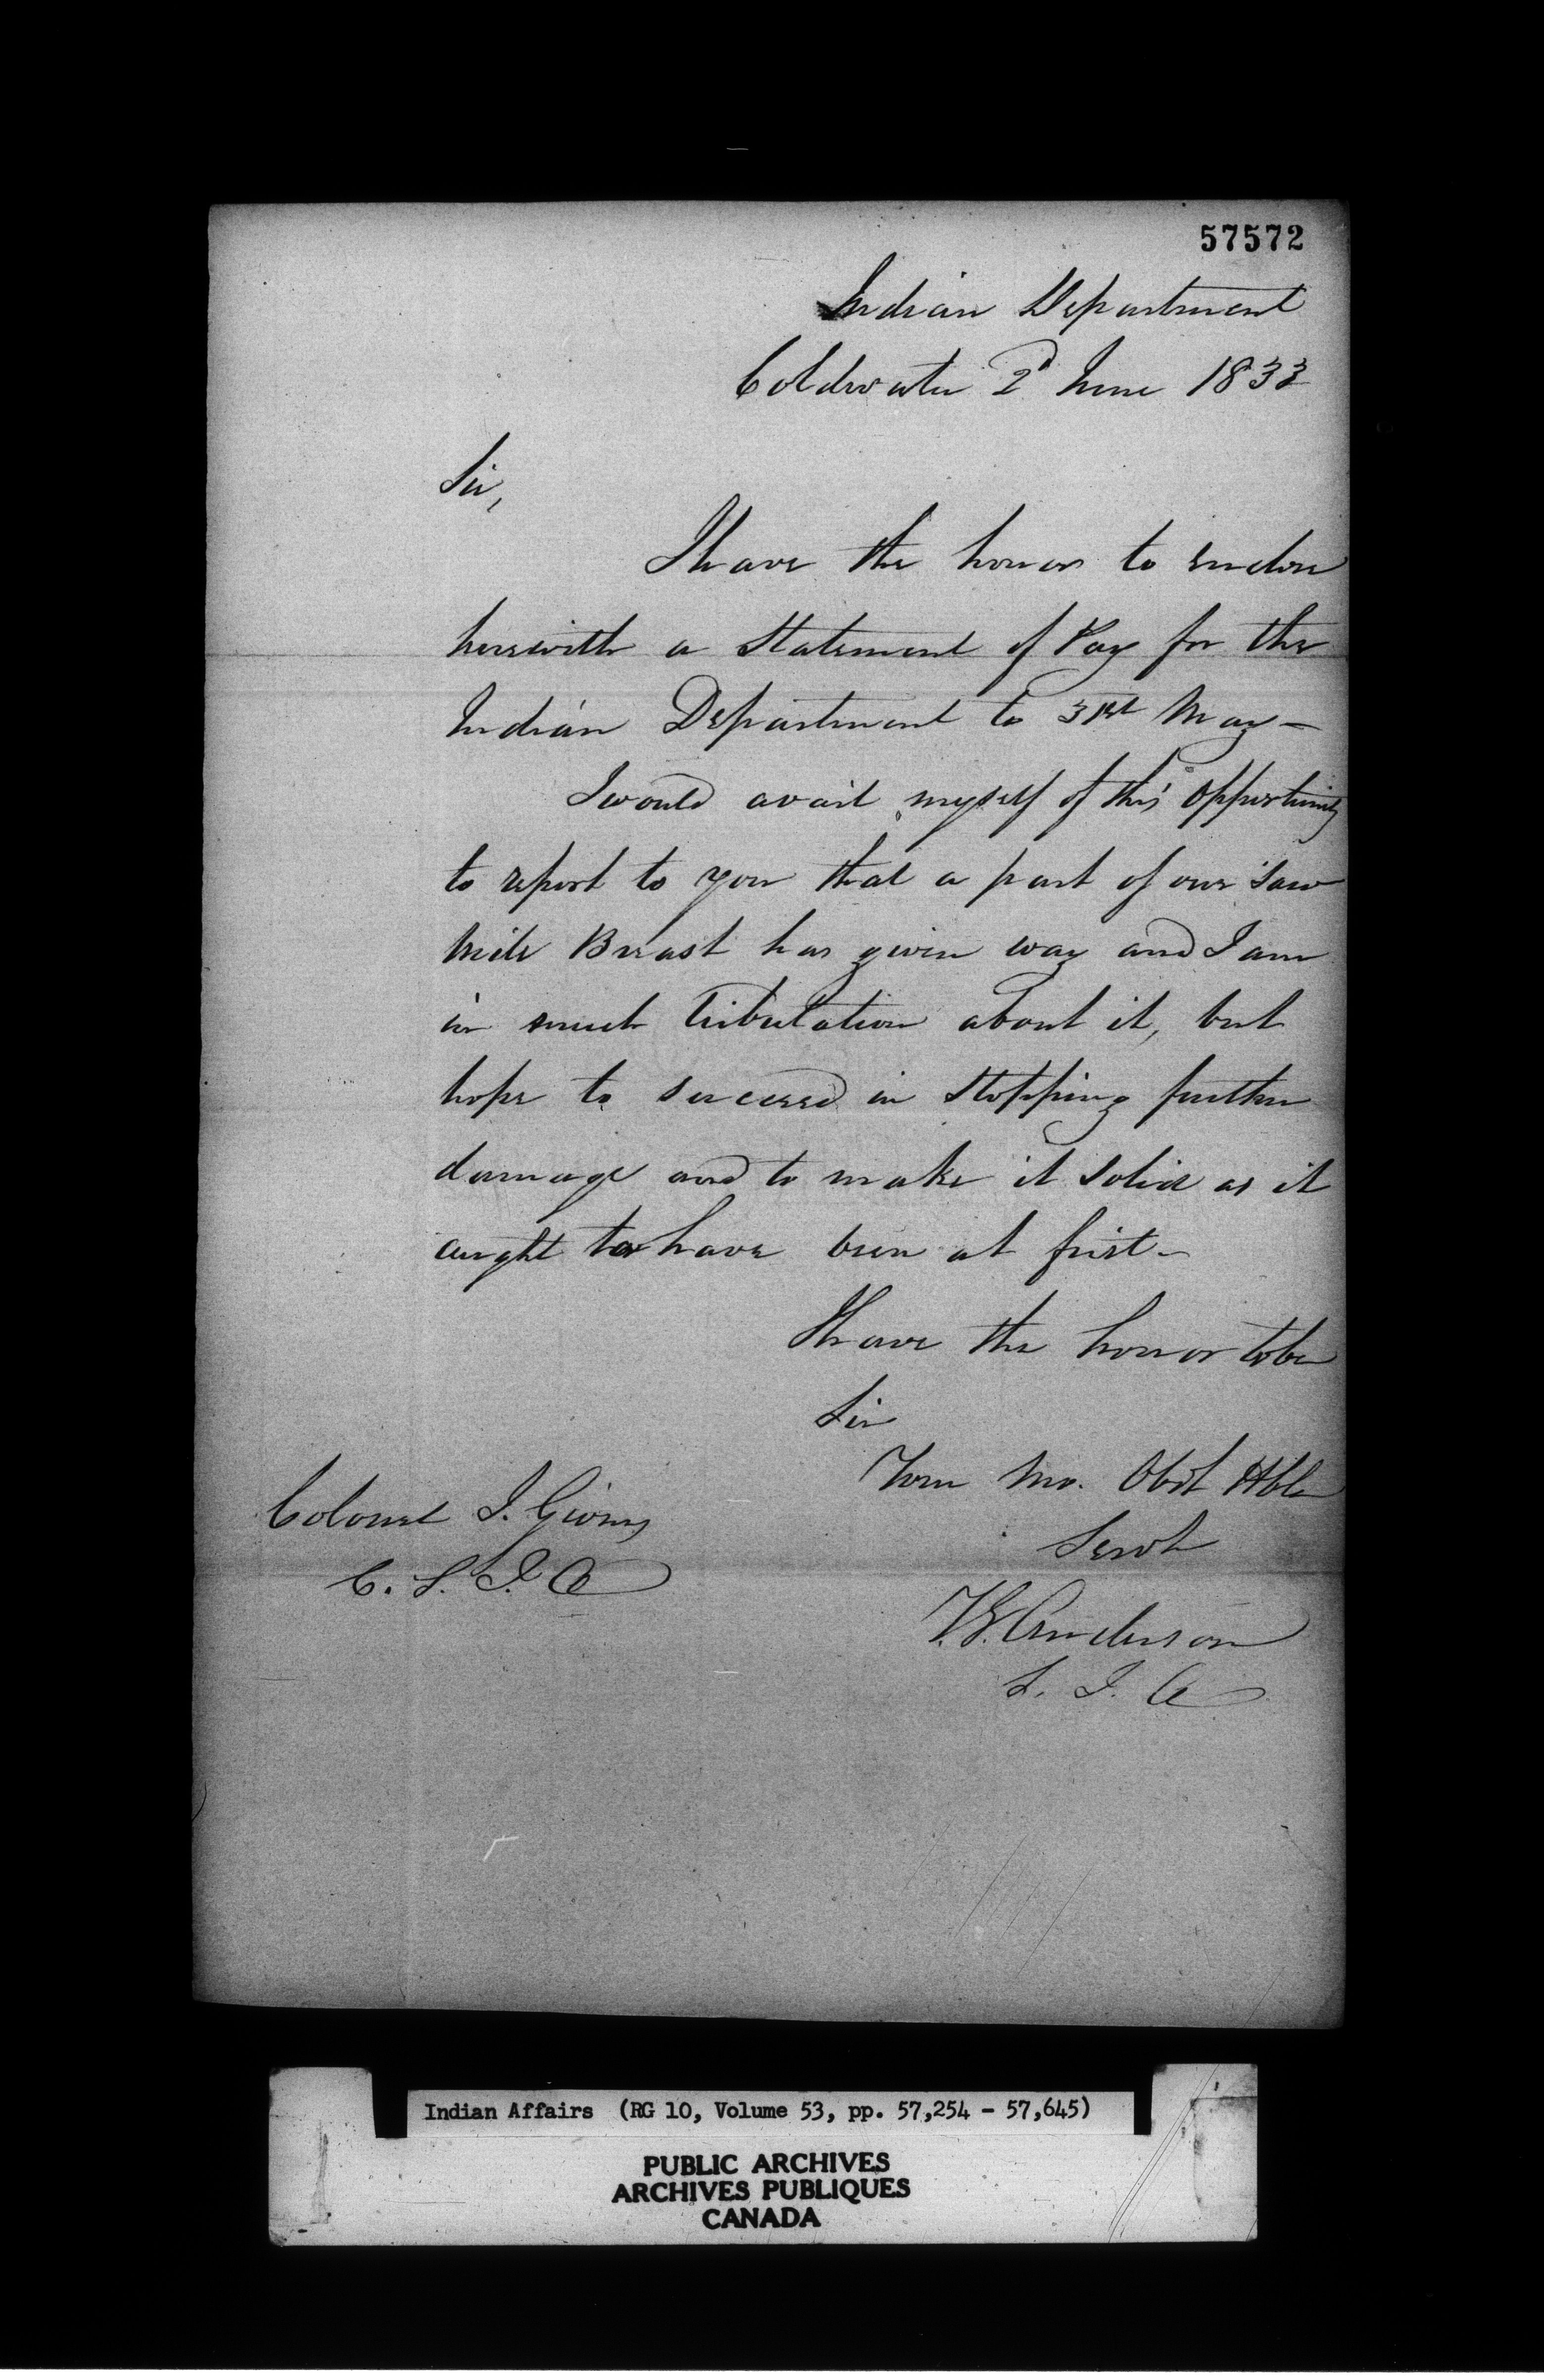 57572
Indian Department
Coldwater 2d June 1833
Sir,
I have the honor to enclose
herewith a Statement of Pay for the
Indian Department to 31st May—
I would avail myself of this opportunity
to report to you that a part of our Saw
Mill Breast has given way and I am
in much tribulation about it, but
hope to succeed in Stopping further
damage and to make it Solid as it
aught to have been at first—
I have the honor to be
Sir
Your Mo. Obdt Hble
Servt
T.G. Anderson
S. I. A
Colonel J. Givins
C. S. I. A
Indian Affairs (RG 10, Volume 53, pp. 57,254 - 57,645)
PUBLIC ARCHIVES
ARCHIVES PUBLIQUES
CANADA